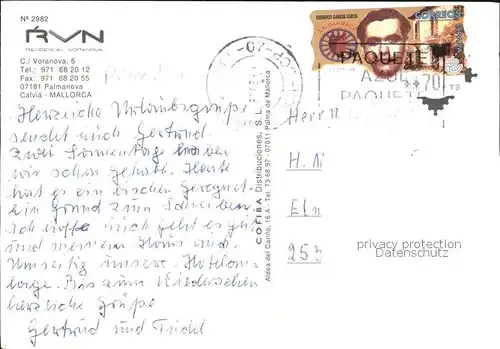 Nº 2982
RVN
RESIDENCIAL VORANOVA
C./ Voranova, 6
Tel.: 971 68 20 12
Fax: 971 68 20 55
07181 Palmanova
Calviá - MALLORCA
Herzliche Urlaubsgrüße
sendet euch Gertrud.
Zwei Sonnentage haben
wir schon gehabt. Heute
hat es ein bischen geregnet.
ein Grund zum Schreiben.
Ich hoffe euch geht es gut
und meinem Haus auch.
Umseitig unsere Hotelan-
lage. Bis zum Wiedersehen
herzliche Grüße
Gertrud und
COFIBA Distribuciones, S. L.
Aldea del Cariño, 16 A - Tel. 73 68 97 - 07011 Palma de Mallorca
FEDERICO GARCIA LORCA
CORREOS
PAQUETE
AZUL
PAQUETE
70
PTS
Herrn
H.
253
privacy protection
Datenschutz